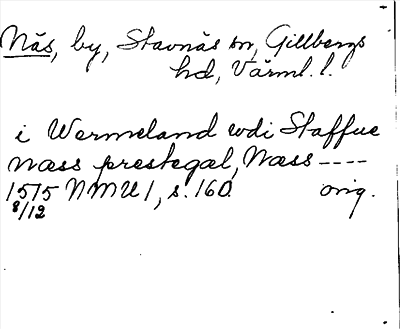 Näs, by, Stavnäs sn, Gillbergs
hd, Värml. l.
i Wermeland wdi Staffue
næss prestegal, Næss ----
1575 NMU 1, s. 160. orig.
8/12